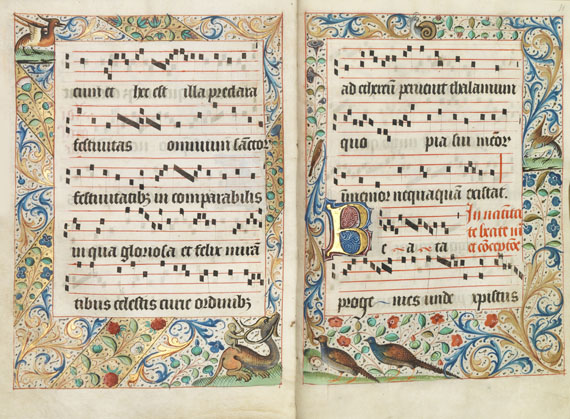 cium et hec est illa preclara
festiuitas omnium sanctor
festiuitatibꝫ in comparabilis
in qua gloriosa et felix mirā
tibus celestis curie ordinibꝫ
ad ethereū peruenit thalamum
quo pia sui mēor
īmemor nequaquā existat.
In natiuita
te beate
et cōcepcōe
Be a ta
proge nies unde xpistus